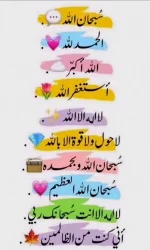 سُبحان الله 💬.
الحمد لله 💗.
الله أكبّر ☁️.
أستغفر الله 🌂.
لااله الا الله ✨.
لاحول ولاقوة الا بالله 💎.
سُبحان الله وبحمده 📻.
سُبحان الله العظيم 💗.
لااله الا انت سبحانك ربي.
أني كنت من الظالمين 🍁.